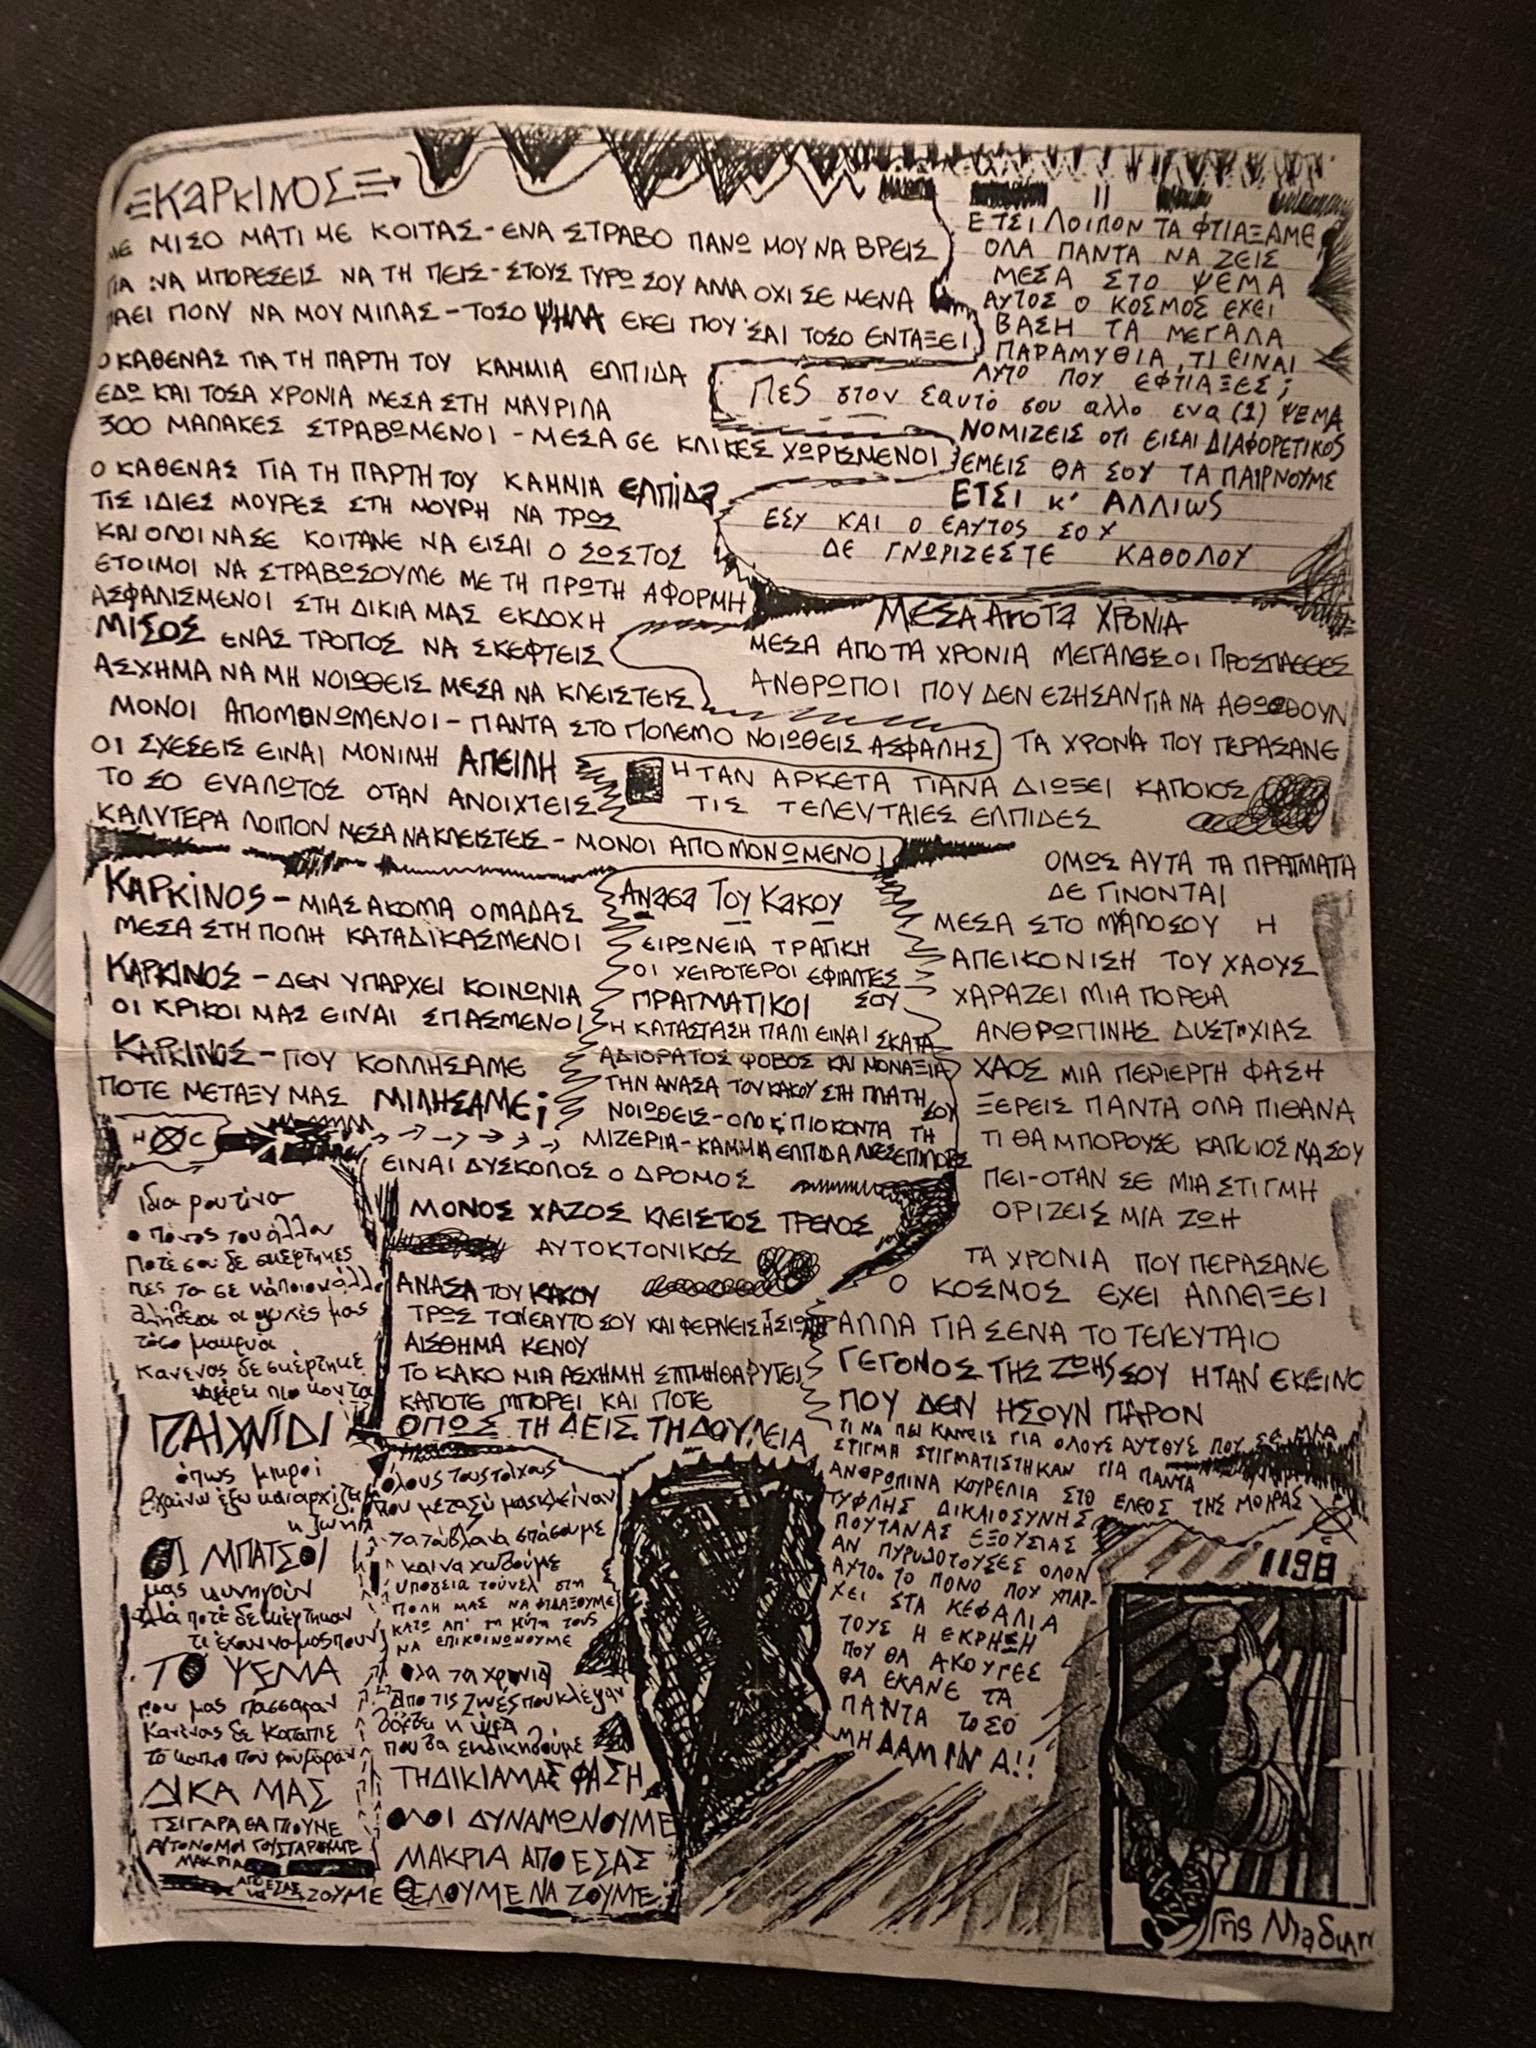 ΚΑΡΚΙΝΟΣ
ΜΕ ΜΙΣΟ ΜΑΤΙ ΜΕ ΚΟΙΤΑΣ - ΕΝΑ ΣΤΡΑΒΟ ΠΑΝΩ ΜΟΥ ΝΑ ΒΡΕΙΣ
ΓΙΑ ΝΑ ΜΠΟΡΕΣΕΙΣ ΝΑ ΤΗ ΠΕΙΣ - ΣΤΟΥΣ ΓΥΡΩ ΣΟΥ ΑΜΑ ΟΧΙ ΣΕ ΜΕΝΑ
ΠΑΕΙ ΠΟΛΥ ΝΑ ΜΟΥ ΜΙΛΑΣ - ΤΟΣΟ ΨΗΛΑ ΕΚΕΙ ΠΟΥ 'ΣΑΙ ΤΟΣΟ ΕΝΤΑΞΕΙ
Ο ΚΑΘΕΝΑΣ ΓΙΑ ΤΗ ΠΑΡΤΗ ΤΟΥ ΚΑΜΜΙΑ ΕΛΠΙΔΑ
ΕΔΩ ΚΑΙ ΤΟΣΑ ΧΡΟΝΙΑ ΜΕΣΑ ΣΤΗ ΜΑΥΡΙΛΑ
300 ΜΑΛΑΚΕΣ ΣΤΡΑΒΩΜΕΝΟΙ - ΜΕΣΑ ΣΕ ΚΛΙΚΕΣ ΧΩΡΙΣΜΕΝΟΙ
Ο ΚΑΘΕΝΑΣ ΓΙΑ ΤΗ ΠΑΡΤΗ ΤΟΥ ΚΑΜΜΙΑ ΕΛΠΙΔΑ
ΤΙΣ ΙΔΙΕΣ ΜΟΥΡΕΣ ΣΤΗ ΜΟΥΡΗ ΝΑ ΤΡΩΣ
ΚΑΙ ΟΛΟΙ ΝΑ ΣΕ ΚΟΙΤΑΝΕ ΝΑ ΕΙΣΑΙ Ο ΣΩΣΤΟΣ
ΕΤΟΙΜΟΙ ΝΑ ΣΤΡΑΒΩΣΟΥΜΕ ΜΕ ΤΗ ΠΡΩΤΗ ΑΦΟΡΜΗ
ΑΣΦΑΛΙΣΜΕΝΟΙ ΣΤΗ ΔΙΚΙΑ ΜΑΣ ΕΚΔΟΧΗ
ΜΙΣΟΣ ΕΝΑΣ ΤΡΟΠΟΣ ΝΑ ΣΚΕΦΤΕΙΣ
ΑΣΧΗΜΑ ΝΑ ΜΗ ΝΟΙΩΘΕΙΣ ΜΕΣΑ ΝΑ ΚΛΕΙΣΤΕΙΣ
ΜΟΝΟΙ ΑΠΟΜΟΝΩΜΕΝΟΙ - ΠΑΝΤΑ ΣΤΟ ΠΟΛΕΜΟ ΝΟΙΩΘΕΙΣ ΑΣΦΑΛΗΣ
ΟΙ ΣΧΕΣΕΙΣ ΕΙΝΑΙ ΜΟΝΙΜΗ ΑΠΕΙΛΗ
ΤΟΣΟ ΕΥΑΛΩΤΟΣ ΟΤΑΝ ΑΝΟΙΧΤΕΙΣ
ΚΑΛΥΤΕΡΑ ΛΟΙΠΟΝ ΜΕΣΑ ΝΑ ΚΛΕΙΣΤΕΙΣ - ΜΟΝΟΙ ΑΠΟΜΟΝΩΜΕΝΟΙ
ΚΑΡΚΙΝΟΣ - ΜΙΑΣ ΑΚΟΜΑ ΟΜΑΔΑΣ
ΜΕΣΑ ΣΤΗ ΠΟΛΗ ΚΑΤΑΔΙΚΑΣΜΕΝΟΙ
ΚΑΡΚΙΝΟΣ - ΔΕΝ ΥΠΑΡΧΕΙ ΚΟΙΝΩΝΙΑ
ΟΙ ΚΡΙΚΟΙ ΜΑΣ ΕΙΝΑΙ ΣΠΑΣΜΕΝΟΙ
ΚΑΡΚΙΝΟΣ - ΠΟΥ ΚΟΛΛΗΣΑΜΕ
ΠΟΤΕ ΜΕΤΑΞΥ ΜΑΣ ΜΙΛΗΣΑΜΕ;
ΕΤΣΙ ΛΟΙΠΟΝ ΤΑ ΦΤΙΑΞΑΜΕ
ΟΛΑ ΠΑΝΤΑ ΝΑ ΖΕΙΣ
ΜΕΣΑ ΣΤΟ ΨΕΜΑ
ΑΥΤΟΣ Ο ΚΟΣΜΟΣ ΕΧΕΙ
ΒΑΣΗ ΤΑ ΜΕΓΑΛΑ
ΠΑΡΑΜΥΘΙΑ, ΤΙ ΕΙΝΑΙ
ΑΥΤΟ ΠΟΥ ΕΦΤΙΑΞΕΣ;
Πες στον εαυτό σου αλλο ενα (1) ΨΕΜΑ
ΝΟΜΙΖΕΙΣ ΟΤΙ ΕΙΣΑΙ ΔΙΑΦΟΡΕΤΙΚΟΣ
ΕΜΕΙΣ ΘΑ ΣΟΥ ΤΑ ΠΑΙΡΝΟΥΜΕ
ΕΤΣΙ Κ' ΑΛΛΙΩΣ
ΕΣΥ ΚΑΙ Ο ΕΑΥΤΟΣ ΣΟΥ
ΔΕ ΓΝΩΡΙΖΕΣΤΕ ΚΑΘΟΛΟΥ
ΜΕΣΑ ΑΠΟ ΤΑ ΧΡΟΝΙΑ
ΜΕΣΑ ΑΠΟ ΤΑ ΧΡΟΝΙΑ ΜΕΓΑΛΕΣ ΟΙ ΠΡΟΣΠΑΘΕΙΕΣ
ΑΝΘΡΩΠΟΙ ΠΟΥ ΔΕΝ ΕΖΗΣΑΝ ΓΙΑ ΝΑ ΑΘΩΩΘΟΥΝ
ΤΑ ΧΡΟΝΙΑ ΠΟΥ ΠΕΡΑΣΑΝΕ
ΗΤΑΝ ΑΡΚΕΤΑ ΓΙΑ ΝΑ ΔΙΩΞΕΙ ΚΑΠΟΙΟΣ
ΤΙΣ ΤΕΛΕΥΤΑΙΕΣ ΕΛΠΙΔΕΣ
ΟΜΩΣ ΑΥΤΑ ΤΑ ΠΡΑΓΜΑΤΑ
ΔΕ ΓΙΝΟΝΤΑΙ
ΜΕΣΑ ΣΤΟ ΜΥΑΛΟ ΣΟΥ Η
ΑΠΕΙΚΟΝΙΣΗ ΤΟΥ ΧΑΟΥΣ
ΧΑΡΑΖΕΙ ΜΙΑ ΠΟΡΕΙΑ
ΑΝΘΡΩΠΙΝΗΣ ΔΥΣΤΥΧΙΑΣ
ΧΑΟΣ ΜΙΑ ΠΕΡΙΕΡΓΗ ΦΑΣΗ
ΞΕΡΕΙΣ ΠΑΝΤΑ ΟΛΑ ΠΙΘΑΝΑ
ΤΙ ΘΑ ΜΠΟΡΟΥΣΕ ΚΑΠΟΙΟΣ ΝΑ ΣΟΥ
ΠΕΙ - ΟΤΑΝ ΣΕ ΜΙΑ ΣΤΙΓΜΗ
ΟΡΙΖΕΙΣ ΜΙΑ ΖΩΗ
ΤΑ ΧΡΟΝΙΑ ΠΟΥ ΠΕΡΑΣΑΝΕ
Ο ΚΟΣΜΟΣ ΕΧΕΙ ΑΛΛΑΞΕΙ
ΑΛΛΑ ΓΙΑ ΣΕΝΑ ΤΟ ΤΕΛΕΥΤΑΙΟ
ΓΕΓΟΝΟΣ ΤΗΣ ΖΩΗΣ ΣΟΥ ΗΤΑΝ ΕΚΕΙΝΟ
ΠΟΥ ΔΕΝ ΗΣΟΥΝ ΠΑΡΟΝ
ΤΙ ΝΑ ΠΕΙ ΚΑΝΕΙΣ ΓΙΑ ΟΛΟΥΣ ΑΥΤΟΥΣ ΠΟΥ ΣΕ ΜΙΑ
ΣΤΙΓΜΑ ΣΤΙΓΜΑΤΙΣΤΗΚΑΝ ΓΙΑ ΠΑΝΤΑ
ΑΝΘΡΩΠΙΝΑ ΚΟΥΡΕΛΙΑ ΣΤΟ ΕΛΕΟΣ ΤΗΣ ΜΟΙΡΑΣ
ΤΥΦΛΗΣ ΔΙΚΑΙΟΣΥΝΗΣ
ΠΟΥΤΑΝΑΣ ΕΞΟΥΣΙΑΣ
ΑΝ ΠΥΡΟΔΟΤΟΥΣΕΣ ΟΛΟΝ
ΑΥΤΟ ΤΟ ΠΟΝΟ ΠΟΥ ΥΠΑΡ-
ΧΕΙ ΣΤΑ ΚΕΦΑΛΙΑ
ΤΟΥΣ Η ΕΚΡΗΞΗ
ΠΟΥ ΘΑ ΑΚΟΥΓΕΣ
ΘΑ ΕΚΑΝΕ ΤΑ
ΠΑΝΤΑ ΤΟΣΟ
ΜΗΔΑΜΙΝΑ!!
Ανασα Του Κακου
ΕΙΡΩΝΕΙΑ ΤΡΑΓΙΚΗ
ΟΙ ΧΕΙΡΟΤΕΡΟΙ ΕΦΙΑΛΤΕΣ
ΠΡΑΓΜΑΤΙΚΟΙ ΣΟΥ
Η ΚΑΤΑΣΤΑΣΗ ΠΑΛΙ ΕΙΝΑΙ ΣΚΑΤΑ
ΑΔΙΟΡΑΤΟΣ ΦΟΒΟΣ ΚΑΙ ΜΟΝΑΞΙΑ
ΤΗΝ ΑΝΑΣΑ ΤΟΥ ΚΑΚΟΥ ΣΤΗ ΠΛΑΤΗ ΣΟΥ
ΝΟΙΩΘΕΙΣ - ΟΛΟ Κ' ΠΙΟ ΚΟΝΤΑ ΤΗ
ΜΙΖΕΡΙΑ - ΚΑΜΜΙΑ ΕΛΠΙΔΑ
ΕΙΝΑΙ ΔΥΣΚΟΛΟΣ Ο ΔΡΟΜΟΣ
ΜΟΝΟΣ ΧΑΖΟΣ ΚΛΕΙΣΤΟΣ ΤΡΕΛΟΣ
ΑΥΤΟΚΤΟΝΙΚΟΣ
ΑΝΑΣΑ ΤΟΥ ΚΑΚΟΥ
ΤΡΩΣ ΤΟΝ ΕΑΥΤΟ ΣΟΥ ΚΑΙ ΦΕΡΝΕΙΣ
ΑΙΣΘΗΜΑ ΚΕΝΟΥ
ΤΟ ΚΑΚΟ ΜΙΑ ΑΣΧΗΜΗ ΣΤΙΓΜΗ ΘΑ ΡΥΤΕΙ
ΚΑΠΟΤΕ ΜΠΟΡΕΙ ΚΑΙ ΠΟΤΕ
ΟΠΩΣ ΤΗ ΔΕΙΣ ΤΗ ΔΟΥΛΕΙΑ
H C
ίδια ρουτίνα
ο πόνος του άλλου
Ποτέ σου δε σκέρτηκες
πες το σε κάποιον άλλο
οι ψυχές μας
τόσο μακρυά
Κανένας δε σκέρτηκε
να φέρει πιο κοντά
ΠΑΙΧΝΙΔΙ
όπως μικροί
Βγαίνω έξω και αρχίζει
η ζωή
ΟΙ ΜΠΑΤΣΟΙ
μας κυνηγούν
αλλά ποτέ δε σκέφτηκαν
τι έχουν να μας πουν
ΤΟ ΨΕΜΑ
που μας πάσσαραν
Κανένας δε κατάπιε
το καπνό που φουμάραν
ΔΙΚΑ ΜΑΣ
ΤΣΙΓΑΡΑ ΘΑ ΠΙΟΥΜΕ
ΑΥΤΟΝΟΜΟΙ ΓΟΥΣΤΑΡΟΥΜΕ
ΜΑΚΡΙΑ
ΑΠΟ ΕΣΑΣ
να ΖΟΥΜΕ
όλους τους τοίχους
που μεταξύ μας κλείναν
τα τάβλα να σπάσουμε
και να χωθούμε
υπόγεια τούνελ στη
ΠΟΛΗ ΜΑΣ ΝΑ ΦΤΙΑΞΟΥΜΕ
ΚΑΤΩ ΑΠ' τη μύτη τους
ΝΑ ΕΠΙΚΟΙΝΩΝΟΥΜΕ
Όλα τα χρόνια
Απο τις ζωές που κλέψαν
η ώρα
που θα εκδικηθούμε
ΤΗ ΔΙΚΙΑ ΜΑΣ ΦΑΣΗ
ΟΛΟΙ ΔΥΝΑΜΩΝΟΥΜΕ
ΜΑΚΡΙΑ ΑΠΟ ΕΣΑΣ
ΘΕΛΟΥΜΕ ΝΑ ΖΟΥΜΕ
1198
Γης Μαδιαμ